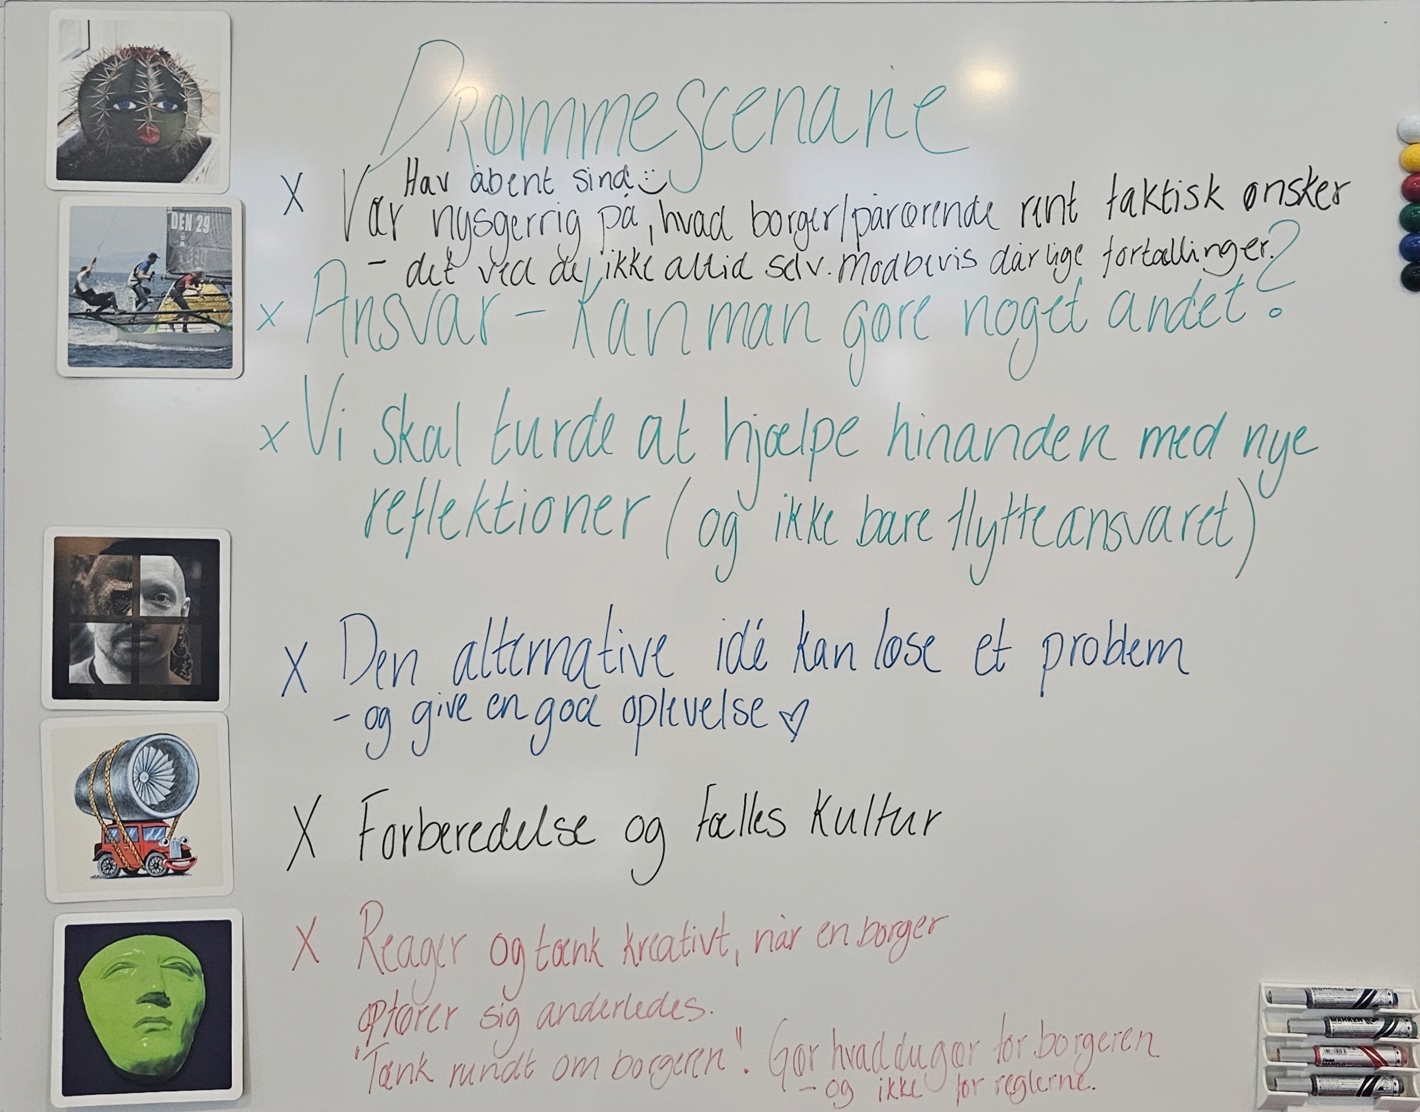 Drømmescenarie
Hav åbent sind
X Vær nysgerrig på, hvad borger/pårørende rent faktisk ønsker
- det ved de ikke altid selv. Modbevis dårlige fortællinger.
x Ansvar - Kan man gøre noget andet?
x Vi skal turde at hjælpe hinanden med nye
reflektioner (og ikke bare flytte ansvaret)
X Den alternative idé kan løse et problem
- og give en god oplevelse ♡
X Forberedelse og fælles kultur
X Reager og tænk kreativt, når en borger
opfører sig anderledes.
"Tænk rundt om borgeren". Gør hvad du gør for borgeren
- og ikke for reglerne.
DEN 29